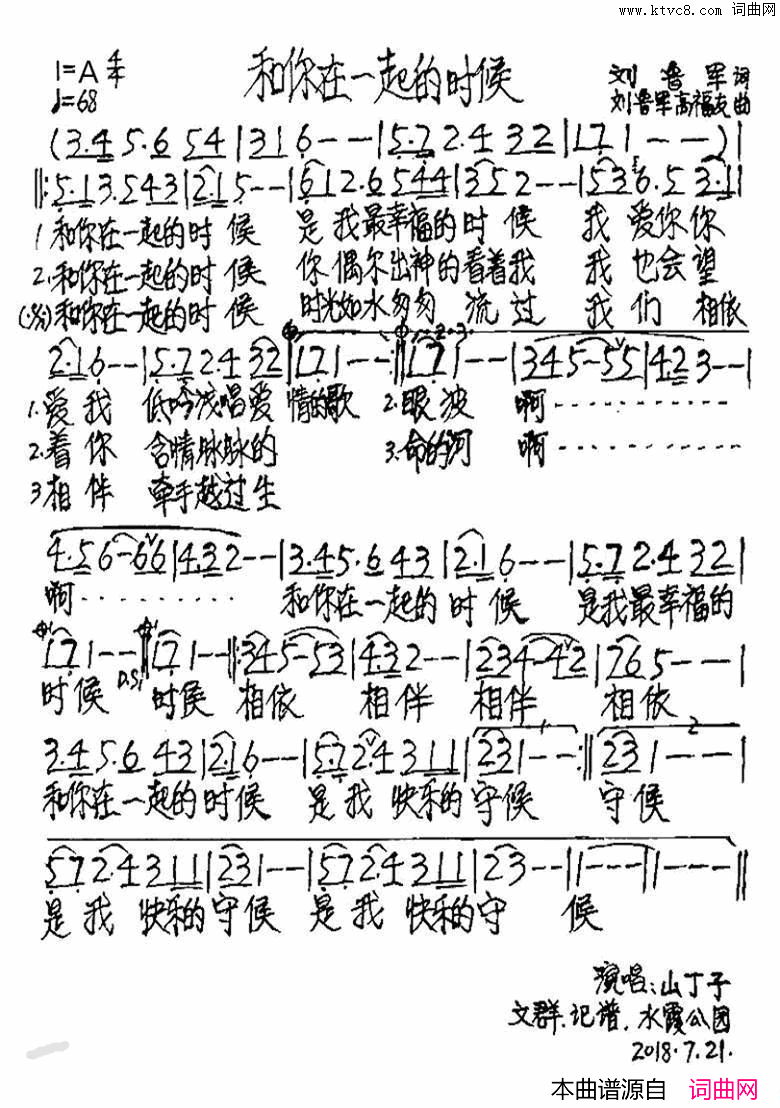 www.ktvc8.com 词曲网
1=A 4/4 和你在一起的时候 刘鲁军 词
♩=68 刘鲁军高福友 曲
(3·4 5·6 54|316--|5·7 2·4 32|171--)|
‖:5·13·543|215--|612·6544|352--|536·5 3·11|
1 和你在一起的时候 是我最幸福的时候 我爱你你
2.和你在一起的时候 你偶尔出神的看着我 我也会望
和你在一起的时候 时光如水匆匆流过 我们相依
2·16--|5·7 2·4 32|171--:‖171--|345-55|423--|
1.爱我 低吟浅唱爱情的歌 2.眼波 啊
2.着你 含情脉脉的 3.命的河 啊
3 相伴 牵手越过生
4·56-66|432--|3·45·643|2·16--|5·72·432|
啊 和你在一起的时候 是我最幸福的
171--‖171--‖:345-53|432--|234-42|765--|
时候 D.S. 时候 相依 相伴 相伴 相依
3·45·643|216--|572·4311|231--:‖231--|
和你在一起的时候 是我快乐的守候 守候
572·4311|231--|572·4311|23--|1---|1---‖
是我快乐的守候 是我快乐的守候
演唱:山丁子
文群.记谱.水霞公园
2018.7.21.
本曲谱源自 词曲网